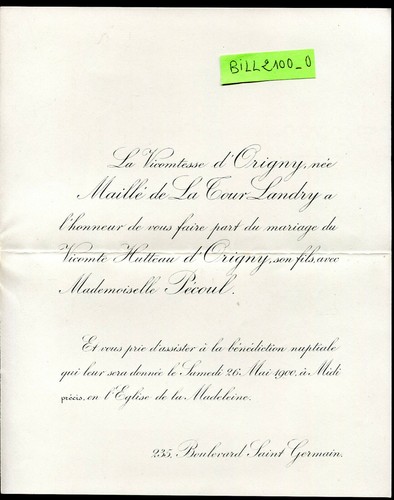 BILL2100_0
La Vicomtesse d'Origny, née
Maillé de La Tour Landry a
l'honneur de vous faire part du mariage du
Vicomte Hutteau d'Origny, son fils, avec
Mademoiselle Pécoul.
Et vous prie d'assister à la bénédiction nuptiale
qui leur sera donnée le Samedi 26 Mai 1900, à Midi
précis, en l'Eglise de la Madeleine.
235, Boulevard Saint Germain.